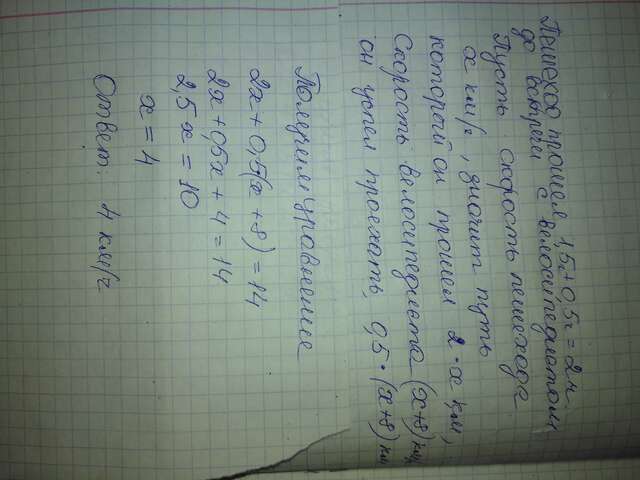 Пешеход прошел 1,5ч+0,5ч=2ч.
до встречи с велосипедистом
Пусть скорость пешехода
x км/ч, значит путь
который он прошел 2·x км,
Скорость велосипедиста (x+8) км/ч
он успел проехать, 0,5·(x+8) км
Получим уравнение
2x+0,5(x+8)=14
2x+0,5x+4=14
2,5x=10
x=4
Ответ: 4 км/ч